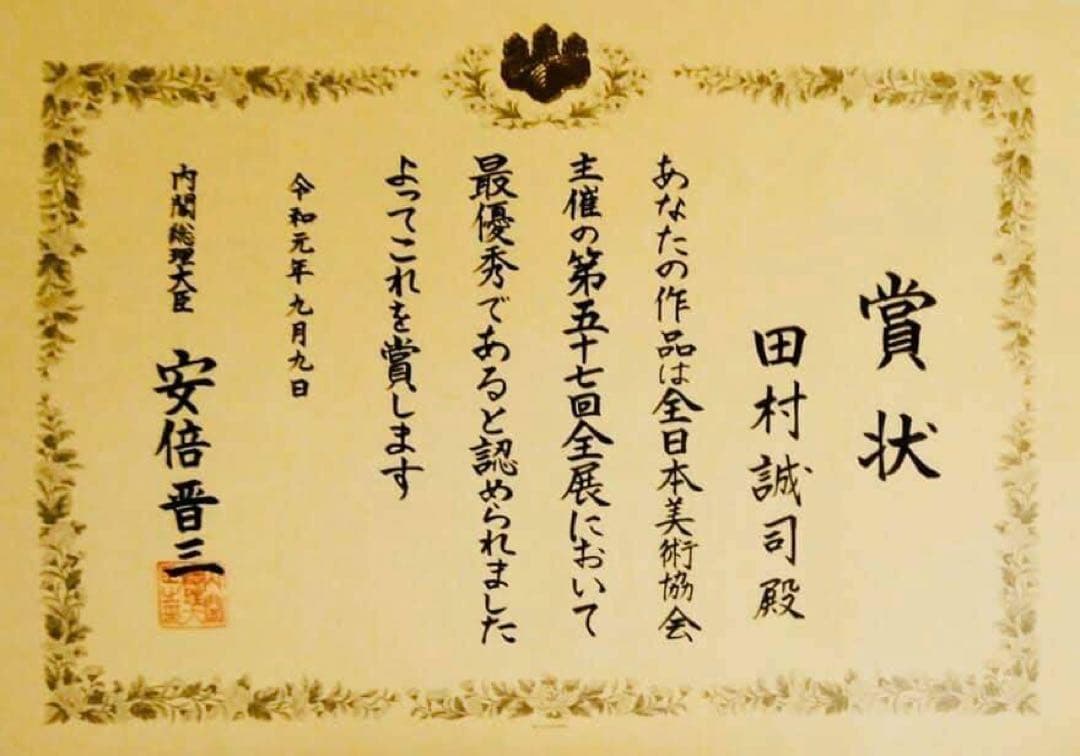 賞状
田村誠司殿
あなたの作品は全日本美術協会
主催の第五十七回全展において
最優秀であると認められました
よってこれを賞します
令和元年九月九日
内閣総理大臣 安倍晋三